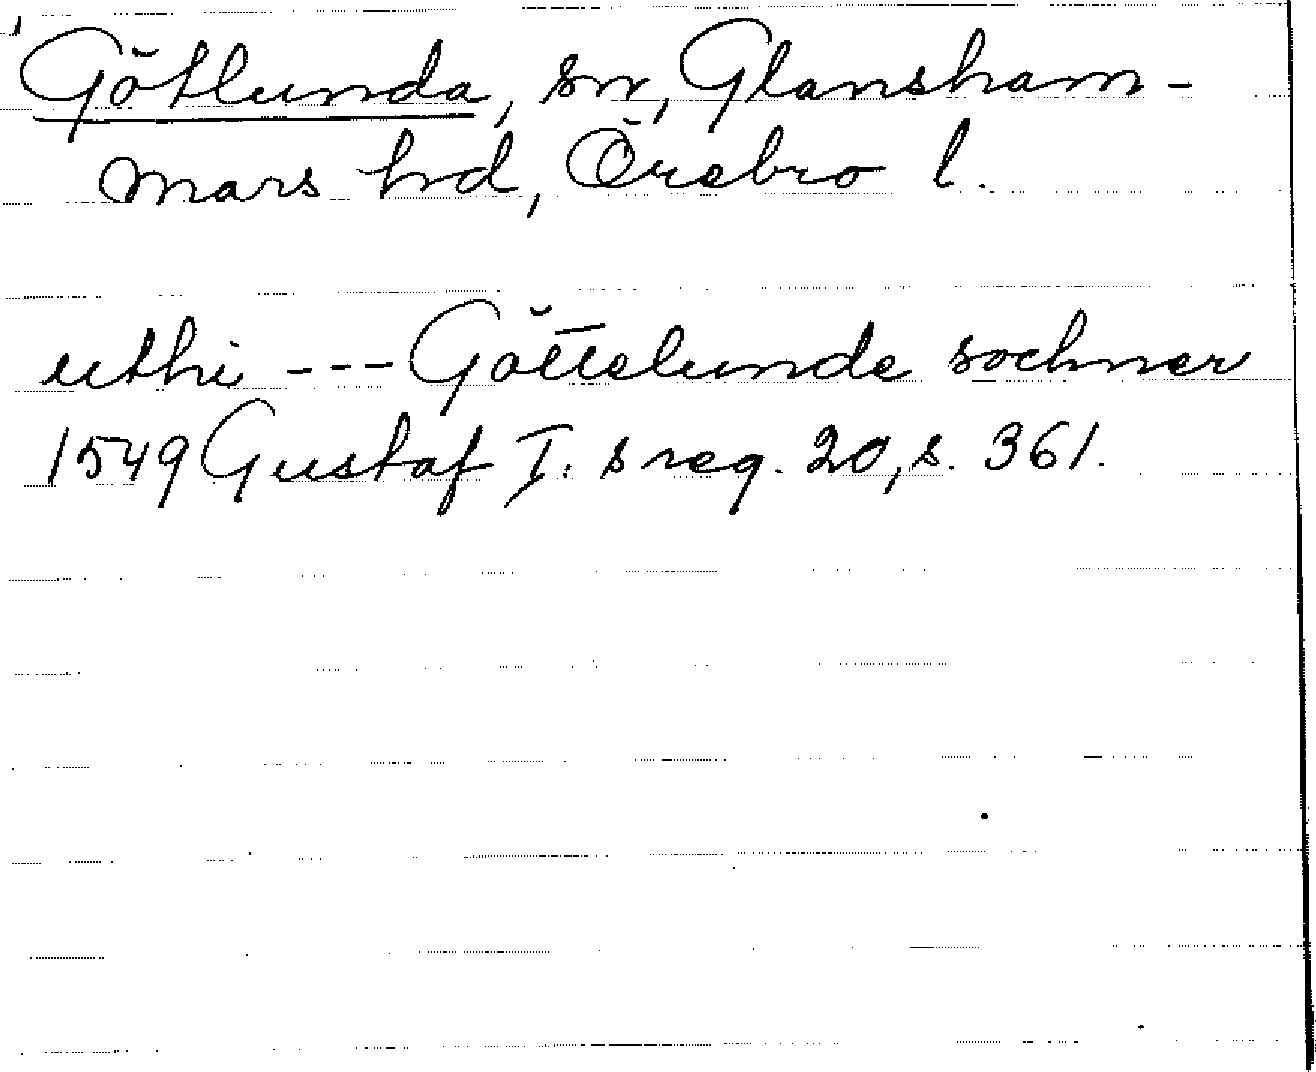 Götlunda, sn, Glansham-
mars hrd, Örebro l.
uthi --- Göttelunde sochner
1549 Gustaf I:s reg. 20, s. 361.